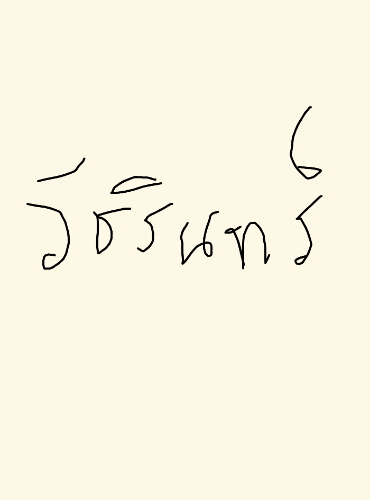 วัชรินทร์